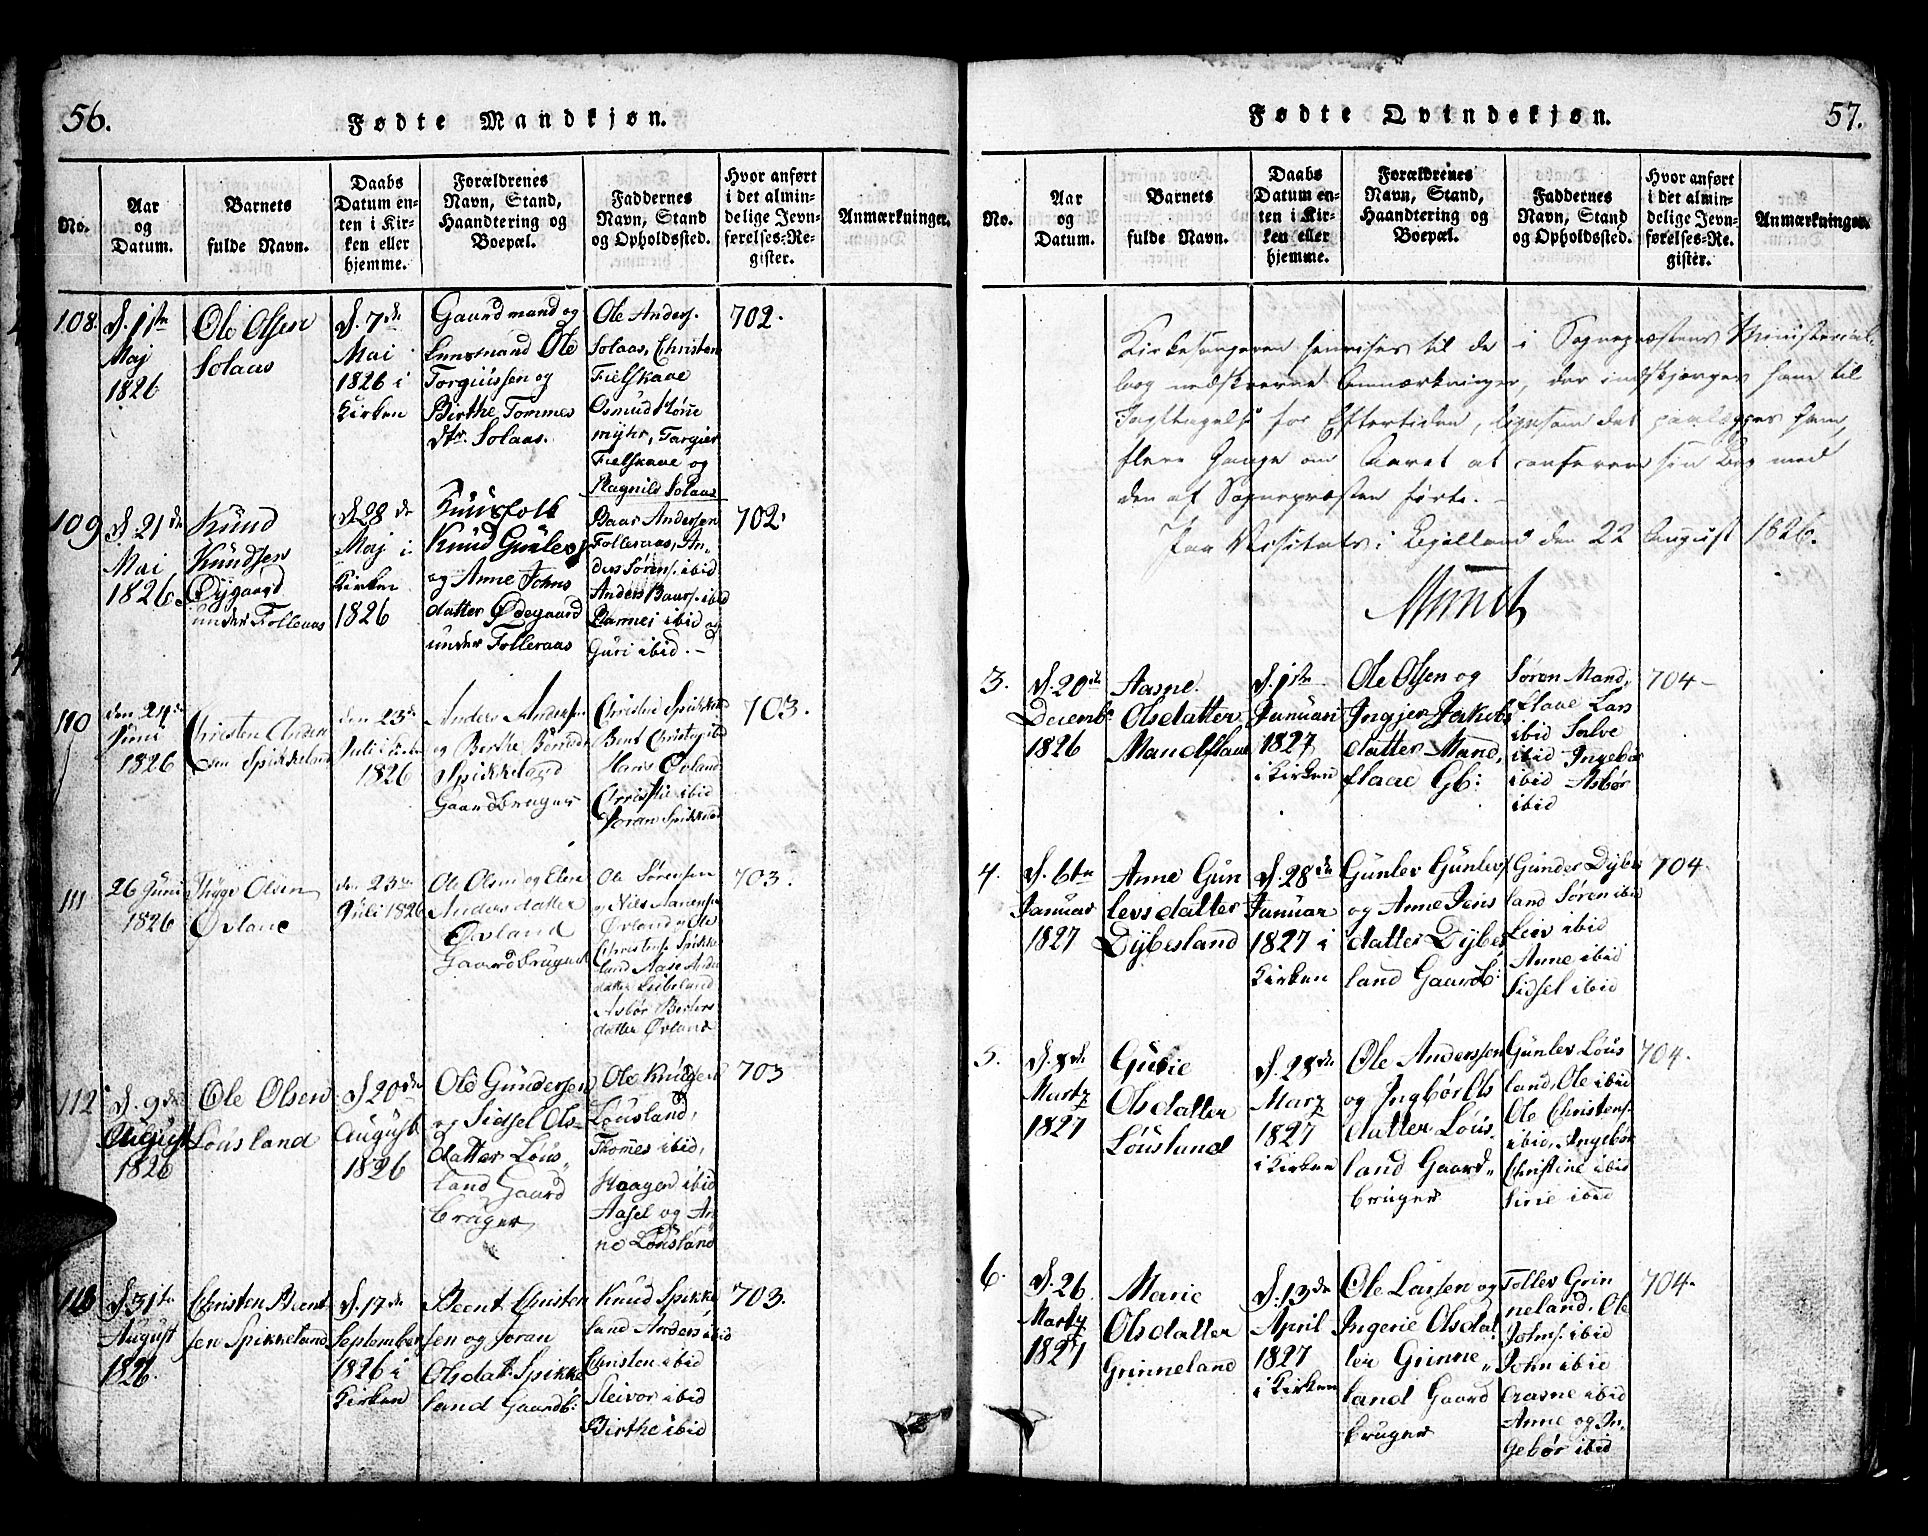 56.
Fødte Mandkjøn.
No.
Aar
og
Datum.
Barnets
fulde Navn.
Daabs
Datum en-
ten i Kir-
ken eller
hjemme.
Forældrenes
Navn, Stand,
Haandtering og
Boepæl.
Faddernes
Navn, Stand
og Opholdssted.
Hvor anført
i det almin-
delige Jevn-
førelses-Re-
gister.
Anmærkninger.
108.
d. 1ste
Maj
1826
Ole Olsen
Solaas
d. 7de
Mai
1826 i
Kirken
Gaardmand og
Lensmand Ole
Torgiussen og
Birthe Tommes
dtr. Solaas.
Ole Anders.
Solaas, Christen
Fielskaae
Osmund Hønne
myhr, Targier
Fielskaae og
Ragnild Solaas
702.
109
d. 21de
Mai
1826
Knud
Knudsen
Øygaard
under Folleraas
d 28de
Maj i
Kirken
1826
Huusfolk
Knud Gunlevs
og Anne Johns
datter Ødegaard
under Folleraas
Baar Andersen
Folleraas, An-
ders Sørens. ibid
Anders Baars. ibid
ibid og
Guri ibid. —
702.
110
den 24de
Juni
1826
Christen Anders
sen Spikkeland
den 23de
Juli i Kirken
1826
Anders Anders
og Berthe Bentsd
Spikkeland
Gaardbruger
Christen Spikkeland
Bent Christens ibid
Hans Øvland
Christie ibid
Joran Spikkeland
703.
111
26 Juni
1826
Thyge Olsen
Øvland
den 23de
Juli 1826
Ole Olsen og Elen
Andersdatter
Øvland
Gaardbruger
Ole Sørensen
og Niels Aanensen
Øvland og Ole
Christens. Spikke
land Aase Anders
datter Leibeland
Asbør Berters
datter Øvland
703.
112
d. 9de
August
1826
Ole Olsen
Løusland
d 20de
August
1826
Ole Gundersen
og Sidsel Ols-
datter Løus
land Gaard
bruger
Ole Knudsen
Løusland,
Thomes ibid,
Haagen ibid
Aasel og An
ne Løusland
703
113
d. 31te
August
1826.
Christen Bent
sen Spikkeland
d. 17de
September
1826 i
Kirken
Bent Christen
sen og Joran
Olsdat. Spikke
land Gaardb:
Knud Spikke
land Anders ibid
Christen ibid
Sleivor ibid
Birthe ibid
703.
57.
Fødte Qvindekjøn.
No.
Aar
og
Datum.
Barnets
fulde Navn.
Daabs
Datum en-
ten i Kir-
ken eller
hjemme.
Forældrenes
Navn, Stand,
Haandtering og
Boepæl.
Faddernes
Navn, Stand
og Opholdssted.
Hvor anført
i det almin-
delige Jevn-
førelses-Re-
gister.
Anmærkninger.
Kirkesangeren henvises til de i Sognepræstens Ministerial-
bog nedskrevne Anmærkninger, der indskjærpes ham til
Iagttagelse for Eftertiden, ligesom det paalægges ham
flere Gange om Aaret at conferere sin Bog med
den af Sognepræsten førte. —
Paa Visitats i Bjelland den 22 August 1826.
Munch
3.
d. 20de
Decemb.
1826
Aasne
Olsdatter
Mandflaae
d. 1ste
Januari
1827
i Kirken
Ole Olsen og
Ingjer Jakobs
datter Mand,
flaae Gb:
Søren Mand,
flaae Lars
ibid Salve
ibid Ingebor
ibid Asbør
ibid
704 –
4.
d. 6te
Januar
1827
Anne Gun
levsdatter
Dybesland
d. 28de
Januar
1827 i
Kirken
Gunlev Gunlevs
og Anne Jens
datter Dybes
land Gaardb:
Gunder Dybes
land Søren ibid
Leiv ibid
Anne ibid
Sidsel ibid
704.
5.
d. 8de
Martz
1827
Gurie
Olsdatter
Løusland
d. 28de
Marz
1827
i Kirken
Ole Anderssen
og Ingbør Ols
datter Løus.
land Gaard„
bruger
Gunlev Løus
land, Ole ibid
Ole Christens.
ibid, Angebør
Christine ibid
Sirie ibid
704.
6.
d. 26
Martz
1827
Marie
Olsdatter
Grinneland
d. 13de
April
1827
i Kirken
Ole Larsen og
Ingerie Olsdat
ter Grinne„
land Gaard
bruger
Tollev Grin
neland, Ole
Johns. ibid
John ibid
ibid
Anne og In,
gebør ibid
704.